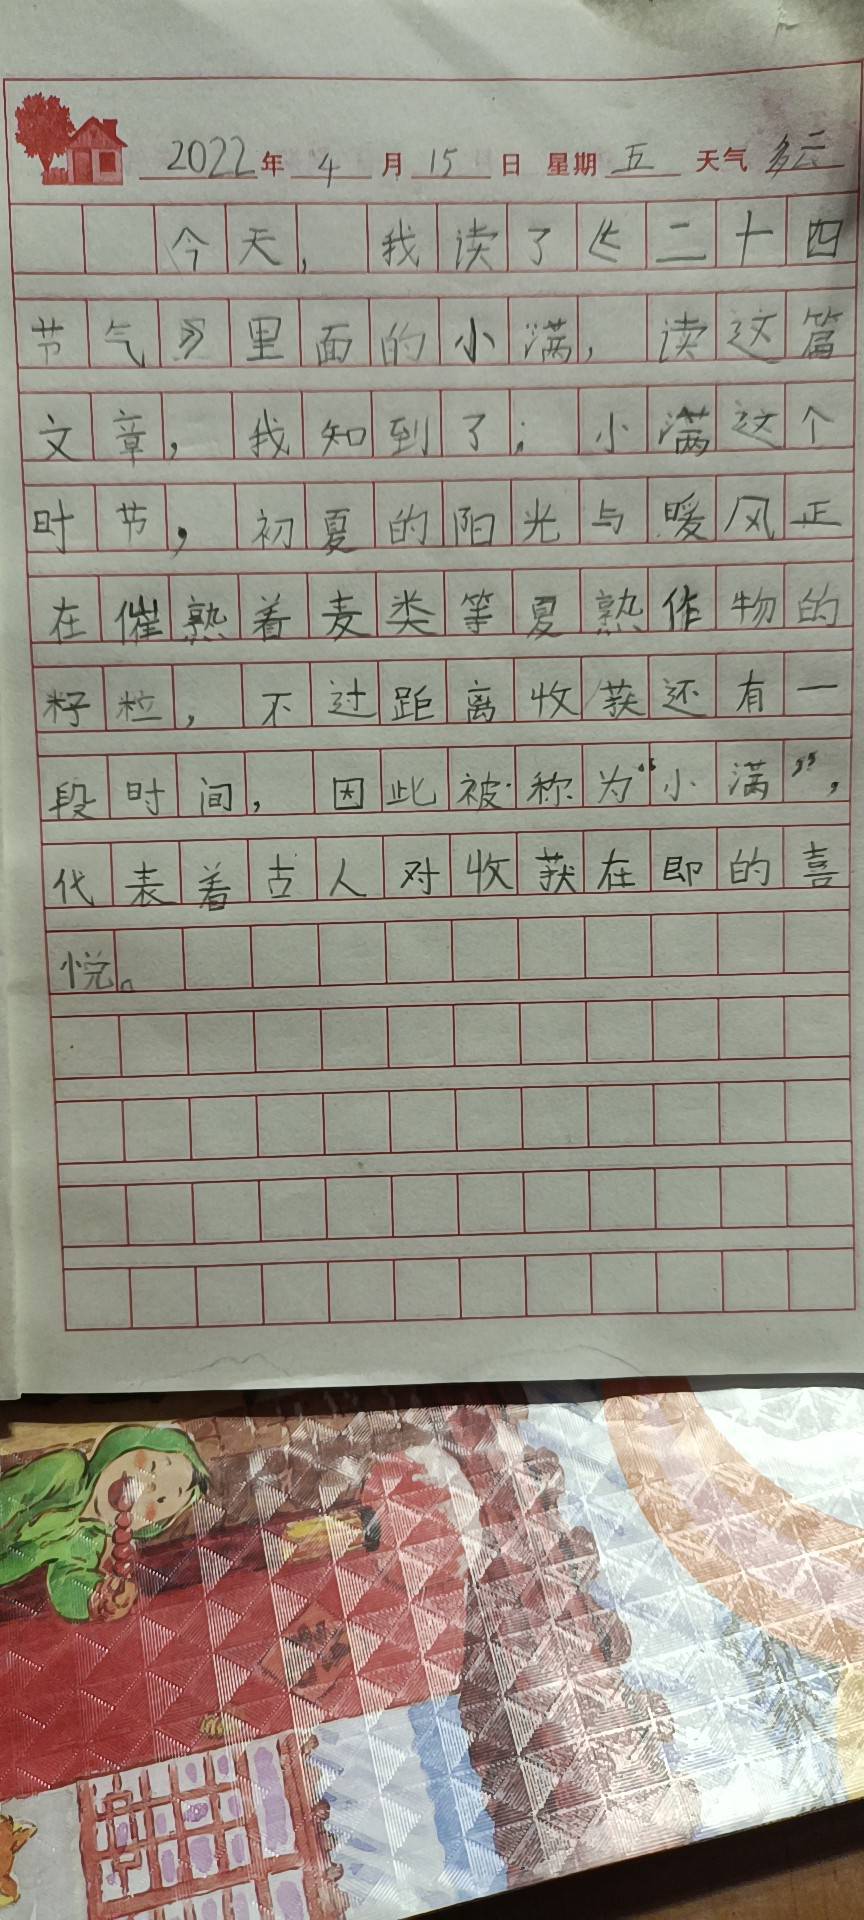 2022年 4 月 15 日 星期 五 天气 多云
今天，我读了《二十四
节气》里面的小满，读这篇
文章，我知到了；小满这个
时节，初夏的阳光与暖风正
在催熟着麦类等夏熟作物的
籽粒，不过距离收获还有一
段时间，因此被称为“小满”，
代表着古人对收获在即的喜
悦。